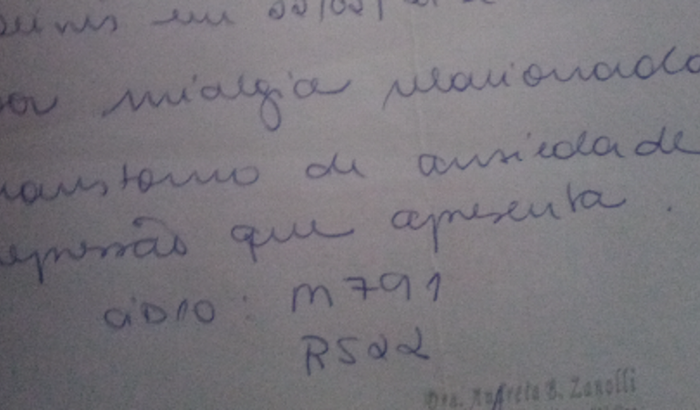 em
mialgia relacionado
transtorno de ansiedade
epressão que apresenta.
CID10: M791
R522
Dra. Andreia B. Zanolli